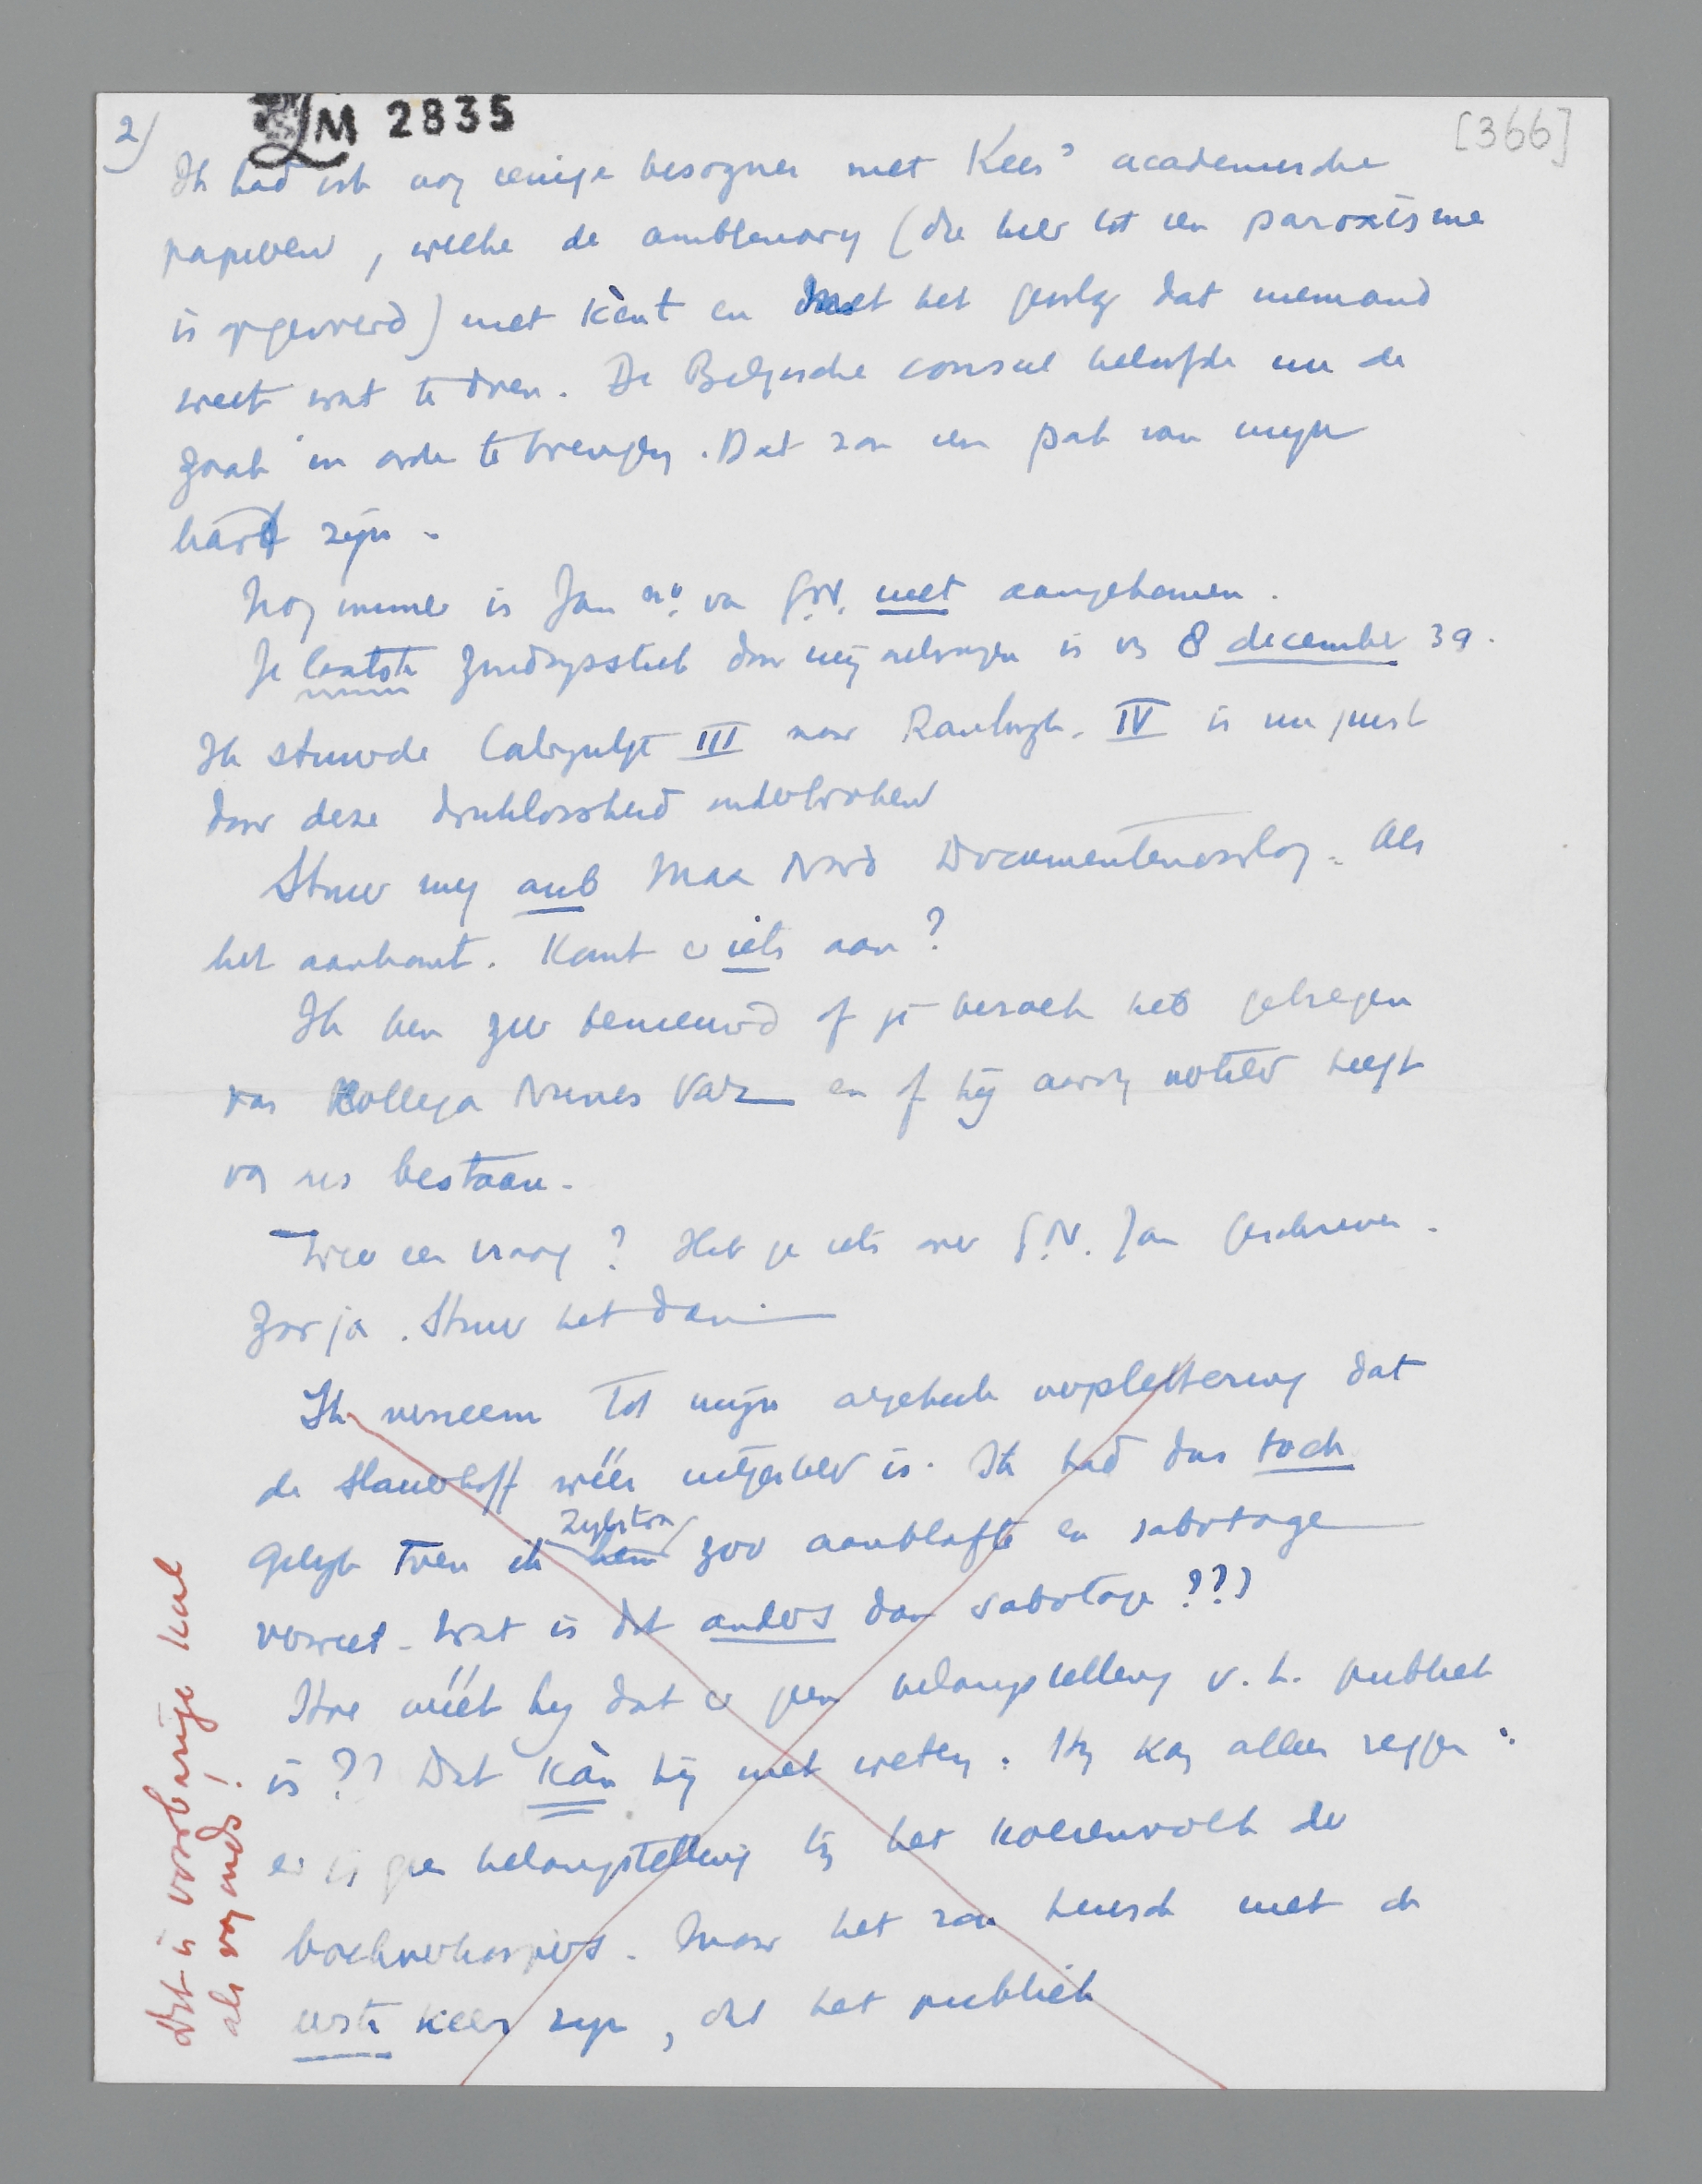 2)
LM 2835
[366]
Ik had ook nog eenige besognes met Kees' academische
papieren, welke de ambtenarij (die hier tot een paroxisme
is opgevoerd) niet kènt en met het gevolg dat niemand
weet wat te doen. De Belgische consul beloofde me de
zaak in orde te brengen. Dat zou een pak van mijn
hart zijn.
Nog immer is Jan no. van G.N. niet aangekomen.
Je laatste Zondagsstuk door mij ontvangen is van 8 december 39.
Ik stuurde III naar IV is nu juist
door deze druklooosheid onderbroken
Stuur mij aub Max Nord Documentenverslag. Als
het aankomt. Komt er iets aan?
Ik ben zeer benieuwd of je bezoek hebt gekregen
van Kollega Nunes Vaz en of hij aardig notitie heeft
van ons bestaan.
Weer een vraag? Heb je iets over G.N. Jan geschreven.
Zoo ja. Stuur het dan.
Ik verneem tot mijn algeheele verplettering dat
de Slauerhoff wéér uitgesteld is. Ik had dus toch
gelijk toen ik hem Zijlstra zoo aanblafte en sabotage
verweet. Wat is dit anders dan sabotage???
Hoe wéét hij dat er geen belangstelling v. h. publiek
is?? Dat kàn hij niet weten. Hij kan alleen zeggen:
er is geen belangstelling bij het koeienvolk der
boekverkoopers. Maar het zou heusch niet de
eerste keer zijn, dat het publiek
Dit is voorbarige kul
als vaq ouds!